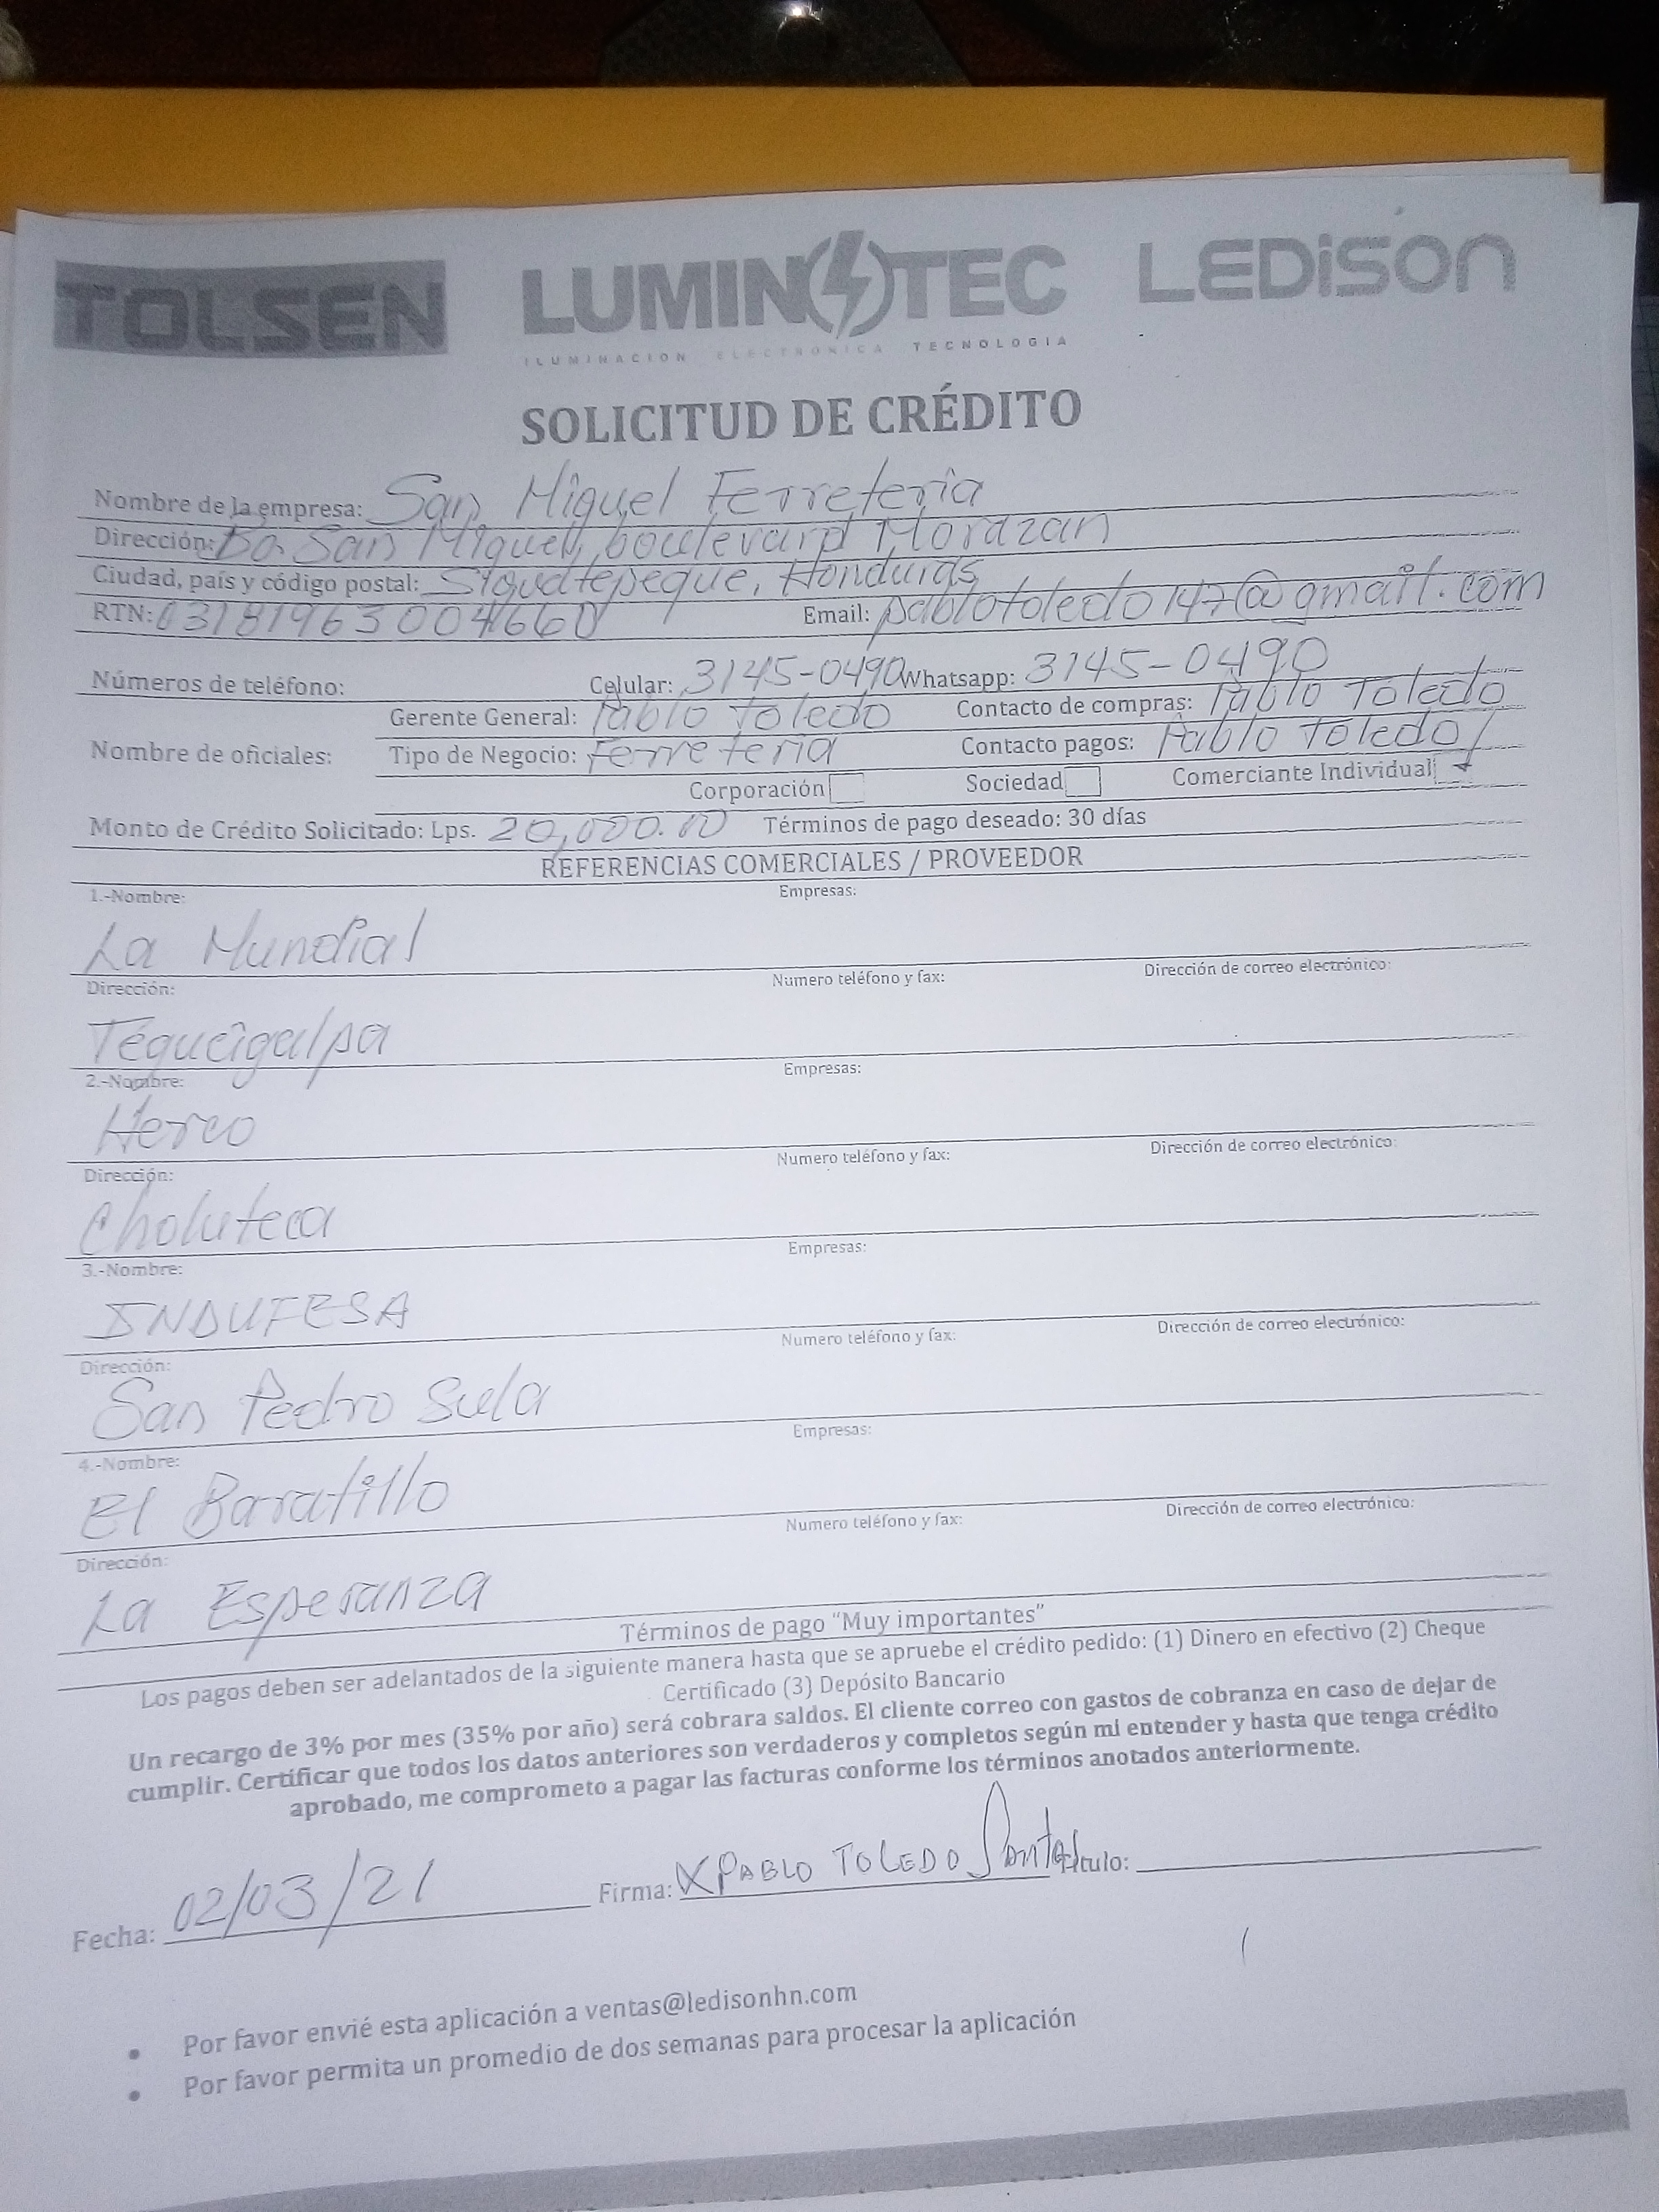 TOLSEN LUMINOTEC LEDISON
ILUMINACION ELECTRONICA TECNOLOGIA
SOLICITUD DE CRÉDITO
Nombre de la empresa: San Miguel Ferreteria
Dirección: Bo. San Miguel, boulevard Morazan
Ciudad, país y código postal: Siguatepeque, Honduras
RTN: 03181963004660 Email: pablotoledo147@gmail.com
Números de teléfono: Celular: 3145-0490 Whatsapp: 3145-0490
Gerente General: Pablo Toledo Contacto de compras: Pablo Toledo
Nombre de oficiales: Tipo de Negocio: Ferreteria Contacto pagos: Pablo Toledo
Corporación Sociedad Comerciante Individual
Monto de Crédito Solicitado: Lps. 20,000.00 Términos de pago deseado: 30 días
REFERENCIAS COMERCIALES / PROVEEDOR
1.-Nombre: Empresas:
La Mundial
Dirección: Numero teléfono y fax: Dirección de correo electrónico:
Tegucigalpa
2.-Nombre: Empresas:
Herco
Dirección: Numero teléfono y fax: Dirección de correo electrónico:
Choluteca
3.-Nombre: Empresas:
INDUFESA
Dirección: Numero teléfono y fax: Dirección de correo electrónico:
San Pedro Sula
4.-Nombre: Empresas:
El Baratillo
Dirección: Numero teléfono y fax: Dirección de correo electrónico:
La Esperanza
Términos de pago "Muy importantes"
Los pagos deben ser adelantados de la siguiente manera hasta que se apruebe el crédito pedido: (1) Dinero en efectivo (2) Cheque
Certificado (3) Depósito Bancario
Un recargo de 3% por mes (35% por año) será cobrara saldos. El cliente correo con gastos de cobranza en caso de dejar de
cumplir. Certificar que todos los datos anteriores son verdaderos y completos según mi entender y hasta que tenga crédito
aprobado, me comprometo a pagar las facturas conforme los términos anotados anteriormente.
Fecha: 02/03/21 Firma: X PABLO TOLEDO Título:
Por favor envié esta aplicación a ventas@ledisonhn.com
Por favor permita un promedio de dos semanas para procesar la aplicación